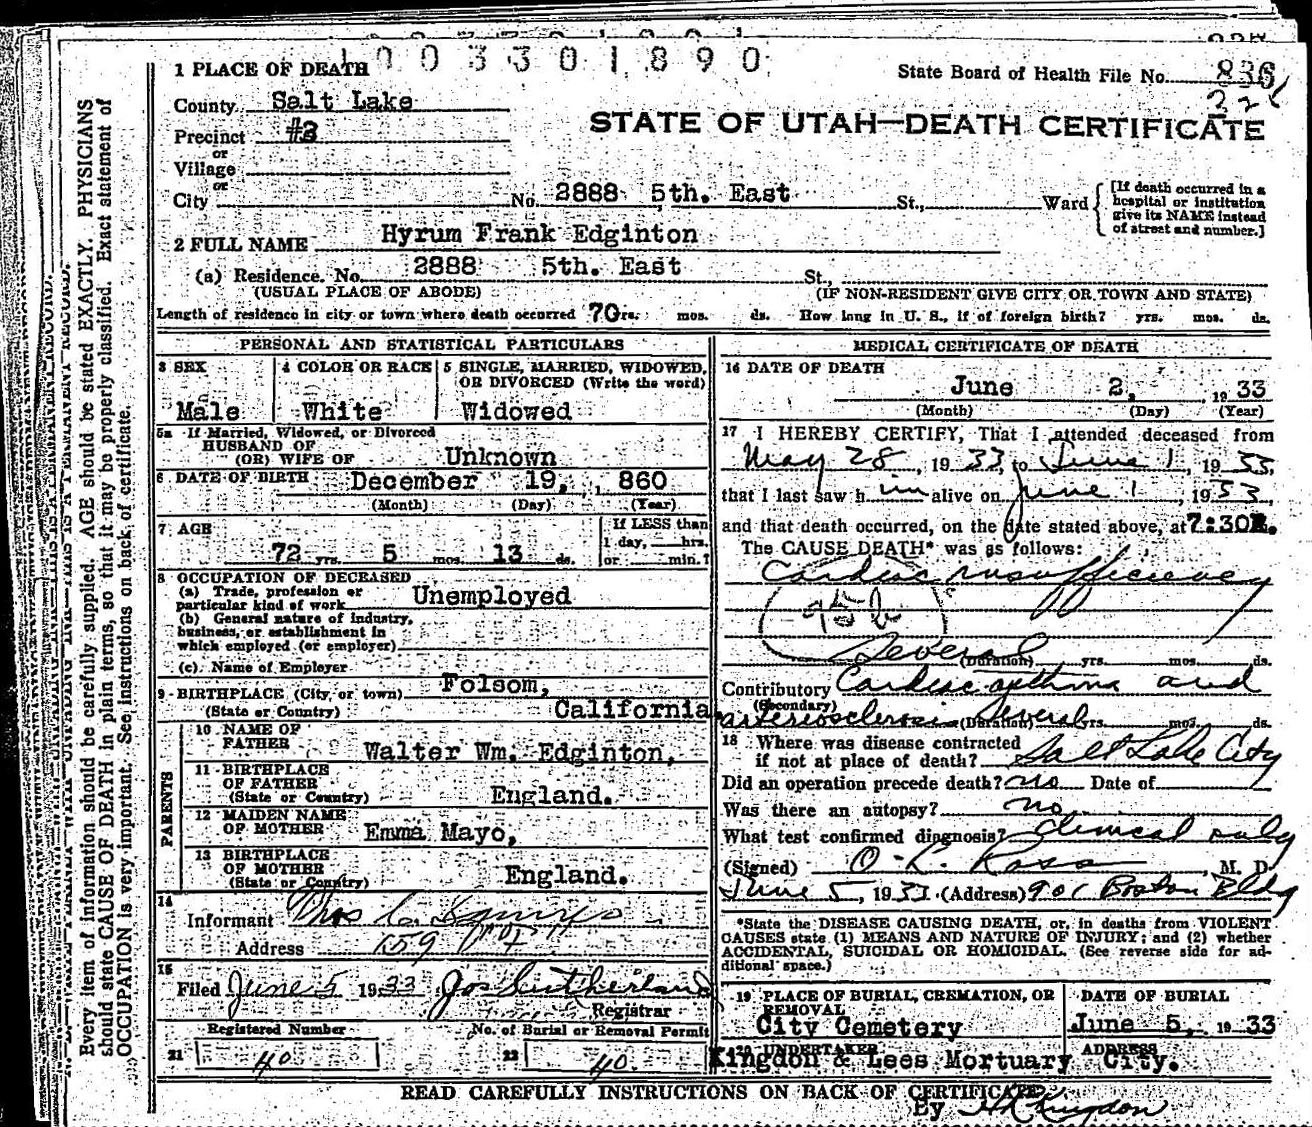 1003301890
1 PLACE OF DEATH
State Board of Health File No. 836
County Salt Lake
Precinct #3
STATE OF UTAH—DEATH CERTIFICATE
or
Village
or
City No. 2888 5th. East St., Ward
[If death occurred in a
hospital or institution
give its NAME instead
of street and number.]
2 FULL NAME Hyrum Frank Edginton
(a) Residence. No. 2888 5th. East St.,
(USUAL PLACE OF ABODE) (IF NON-RESIDENT GIVE CITY OR TOWN AND STATE)
Length of residence in city or town where death occurred 70 rs. mos. ds. How long in U. S., if of foreign birth? yrs. mos. ds.
PERSONAL AND STATISTICAL PARTICULARS
3 SEX 4 COLOR OR RACE 5 SINGLE, MARRIED, WIDOWED,
OR DIVORCED (Write the word)
Male White Widowed
5a If Married, Widowed, or Divorced
HUSBAND OF
(OR) WIFE OF Unknown
6 DATE OF BIRTH December 19, 1 860
(Month) (Day) (Year)
7 AGE If LESS than
1 day, hrs.
72 yrs. 5 mos. 13 ds. or min.?
8 OCCUPATION OF DECEASED
(a) Trade, profession or
particular kind of work Unemployed
(b) General nature of industry,
business, or establishment in
which employed (or employer)
(c) Name of Employer
9 BIRTHPLACE (City or town) Folsom,
(State or Country) California
PARENTS
10 NAME OF
FATHER Walter Wm. Edginton,
11 BIRTHPLACE
OF FATHER
(State or Country) England.
12 MAIDEN NAME
OF MOTHER Emma Mayo,
13 BIRTHPLACE
OF MOTHER
(State or Country) England.
14
Informant
Address 159
15
Filed June 5 1933 Jos Sutherland
Registrar
Registered Number No. of Burial or Removal Permit
21 40 22 40
MEDICAL CERTIFICATE OF DEATH
16 DATE OF DEATH
June 2, 19 33
(Month) (Day) (Year)
17 I HEREBY CERTIFY, That I attended deceased from
May 28, 19 33 to June 1, 19 33
that I last saw h im alive on June 1, 19 33
and that death occurred, on the date stated above, at 7:30
The CAUSE DEATH* was as follows:
Cardiac insufficiency
95b
Several (Duration) yrs. mos. ds.
Contributory Cardiac asthma and
(Secondary)
arteriosclerosis (Duration) several rs. mos. ds.
18 Where was disease contracted
if not at place of death? Salt Lake City
Did an operation precede death? no Date of
Was there an autopsy? no
What test confirmed diagnosis? clinical only
(Signed) O. K. Ross, M. D.
June 5, 1933 (Address) 901 Boston Bldg
*State the DISEASE CAUSING DEATH, or, in deaths from VIOLENT
CAUSES state (1) MEANS AND NATURE OF INJURY; and (2) whether
ACCIDENTAL, SUICIDAL OR HOMICIDAL. (See reverse side for ad-
ditional space.)
19 PLACE OF BURIAL, CREMATION, OR
REMOVAL
City Cemetery
DATE OF BURIAL
June 5, 19 33
20 UNDERTAKER ADDRESS
Kingdon & Lees Mortuary City.
READ CAREFULLY INSTRUCTIONS ON BACK OF CERTIFICATE
By
Every item of information should be carefully supplied. AGE should be stated EXACTLY. PHYSICIANS
should state CAUSE OF DEATH in plain terms, so that it may be properly classified. Exact statement of
OCCUPATION is very important. See instructions on back of certificate.